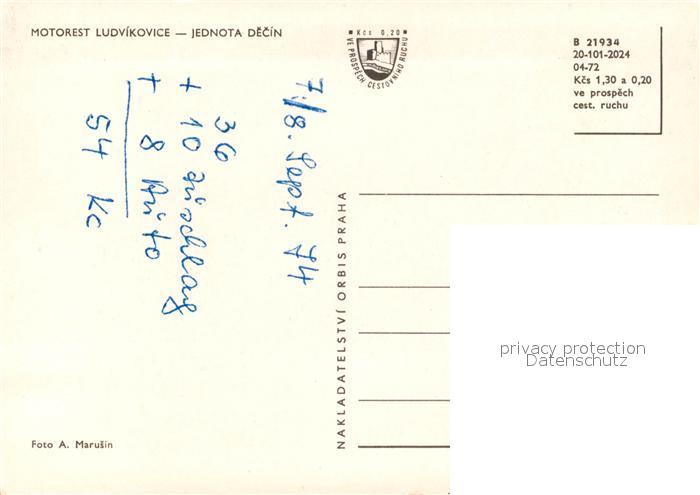 MOTOREST LUDVÍKOVICE — JEDNOTA DĚČÍN
Kčs 0,20
VE PROSPĚCH CESTOVNÍHO RUCHU
B 21934
20-101-2024
04-72
Kčs 1,30 a 0,20
ve prospěch
cest. ruchu
7./8. Sept. 74
36
+ 10 Zuschlag
+ 8 Auto
54 Kc
NAKLADATELSTVÍ ORBIS PRAHA
privacy protection
Datenschutz
Foto A. Marušin